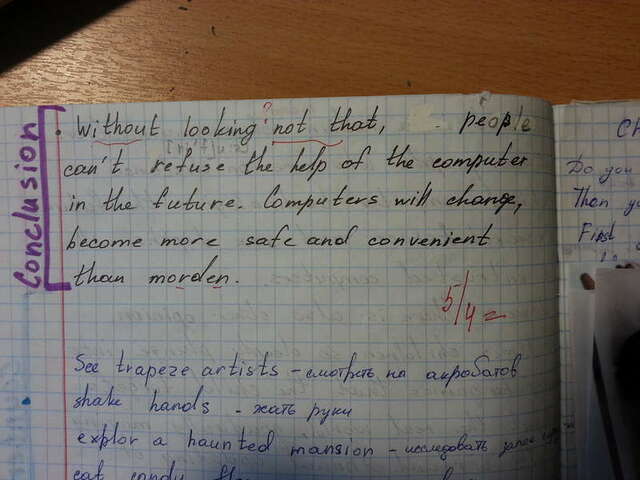 Conclusion
Without looking ? not that, people
can't refuse the help of the computer
in the future. Computers will change,
become more safe and convenient
than morden.
5/4=
See trapeze artists - смотреть на акробатов
shake hands - жать руки
explor a haunted mansion - исследовать
eat candy
Do you
Then
First